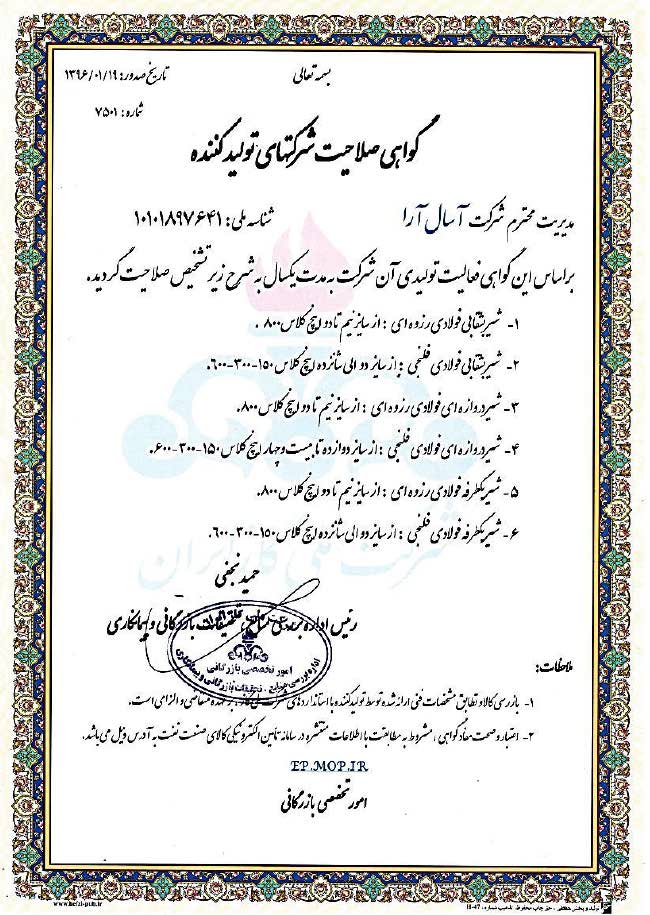 بسمه تعالی
تاریخ صدور: ۱۳۹۶/۰۱/۱۹
شماره: ۷۵۰۱
گواهی صلاحیت شرکتهای تولید کننده
مدیریت محترم شرکت آسال آرا شناسه ملی: ۱۰۱۰۱۸۹۷۶۴۱
براساس این گواهی فعالیت تولیدی آن شرکت به مدت یکسال به شرح زیر تشخیص صلاحیت گردید.
۱- شیر بشقابی فولادی رزوه ای : از سایز نیم تا دو اینچ کلاس ۸۰۰ .
۲- شیر بشقابی فولادی فلنجی : از سایز دو الی شانزده اینچ کلاس ۱۵۰-۳۰۰-۶۰۰.
۳- شیر دروازه ای فولادی رزوه ای : از سایز نیم تا دو اینچ کلاس ۸۰۰.
۴- شیر دروازه ای فولادی فلنجی : از سایز دوازده تا بیست و چهار اینچ کلاس ۱۵۰-۳۰۰-۶۰۰.
۵- شیر یکطرفه فولادی رزوه ای : از سایز نیم تا دو اینچ کلاس ۸۰۰.
۶- شیر یکطرفه فولادی فلنجی : از سایز دو الی شانزده اینچ کلاس ۱۵۰-۳۰۰-۶۰۰.
شرکت ملی گاز ایران
حمید نجفی
رئیس اداره بررسی منابع، تحقیقات بازرگانی و پیمانکاری
امور تخصصی بازرگانی
اداره بررسی منابع، تحقیقات بازرگانی و پیمانکاری
ملاحظات:
۱- بازرسی کالا و تطابق مشخصات فنی ارائه شده توسط تولید کننده با استانداردهای شرکت ملی گاز بر عهده متقاضی و الزامی است.
۲- اعتبار و صحت مفاد گواهی ، مشروط به مطابقت با اطلاعات منتشره در سامانه تامین الکترونیکی کالای صنعت نفت به آدرس ذیل می باشد.
EP.MOP.IR
امور تخصصی بازرگانی
www.hefzi-pub.ir